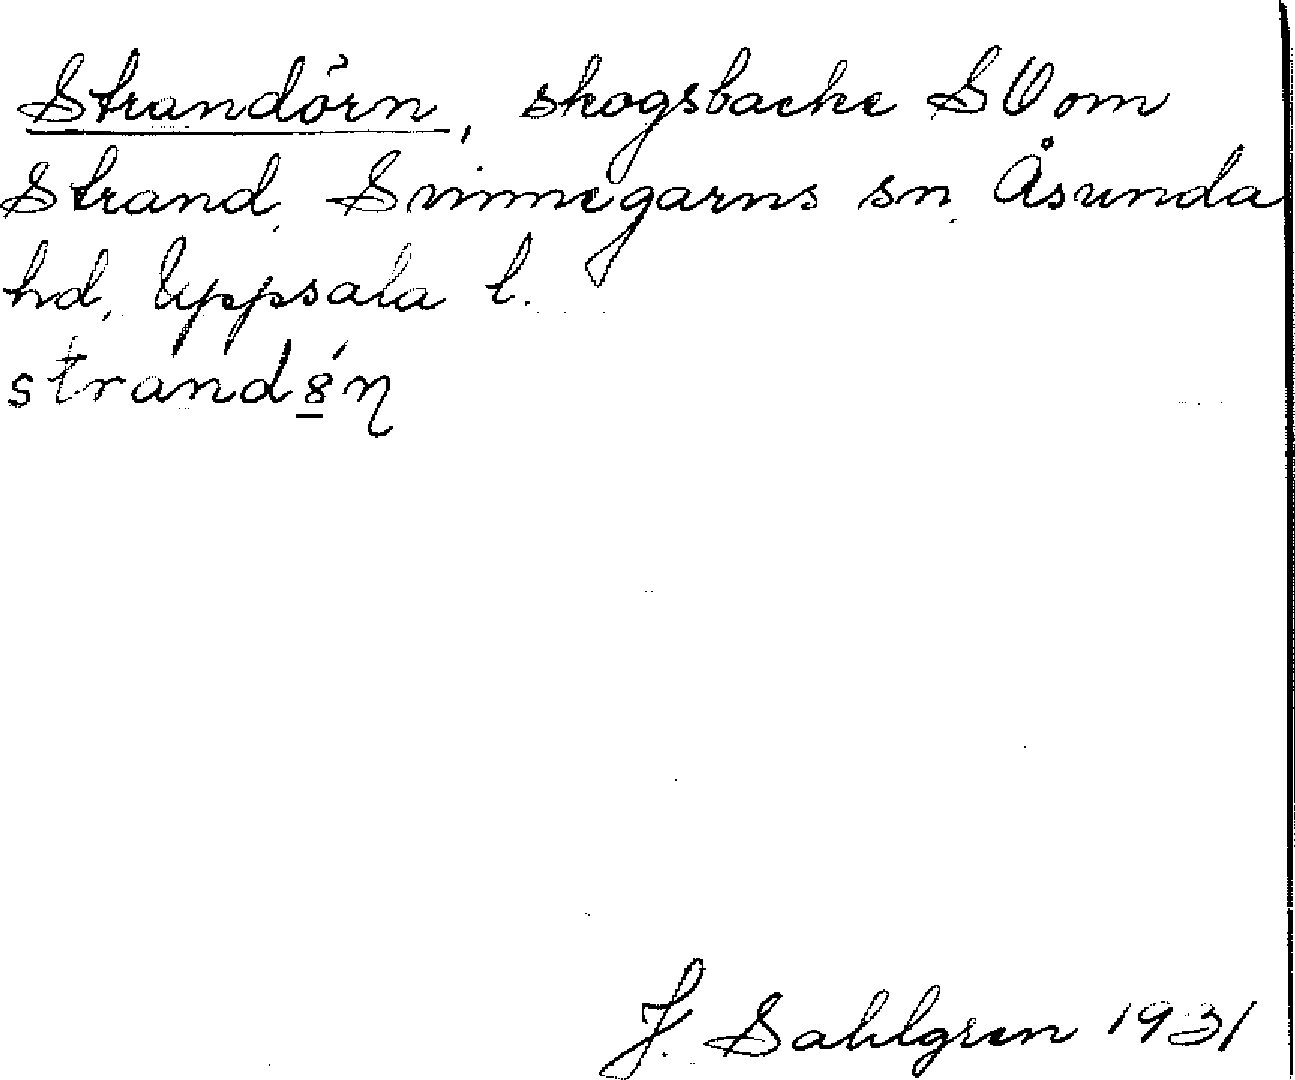 Strandörn, skogsbacke SV om
Strand, Svinnegarns sn, Åsunda
hd, Uppsala l.
J. Sahlgren 1931